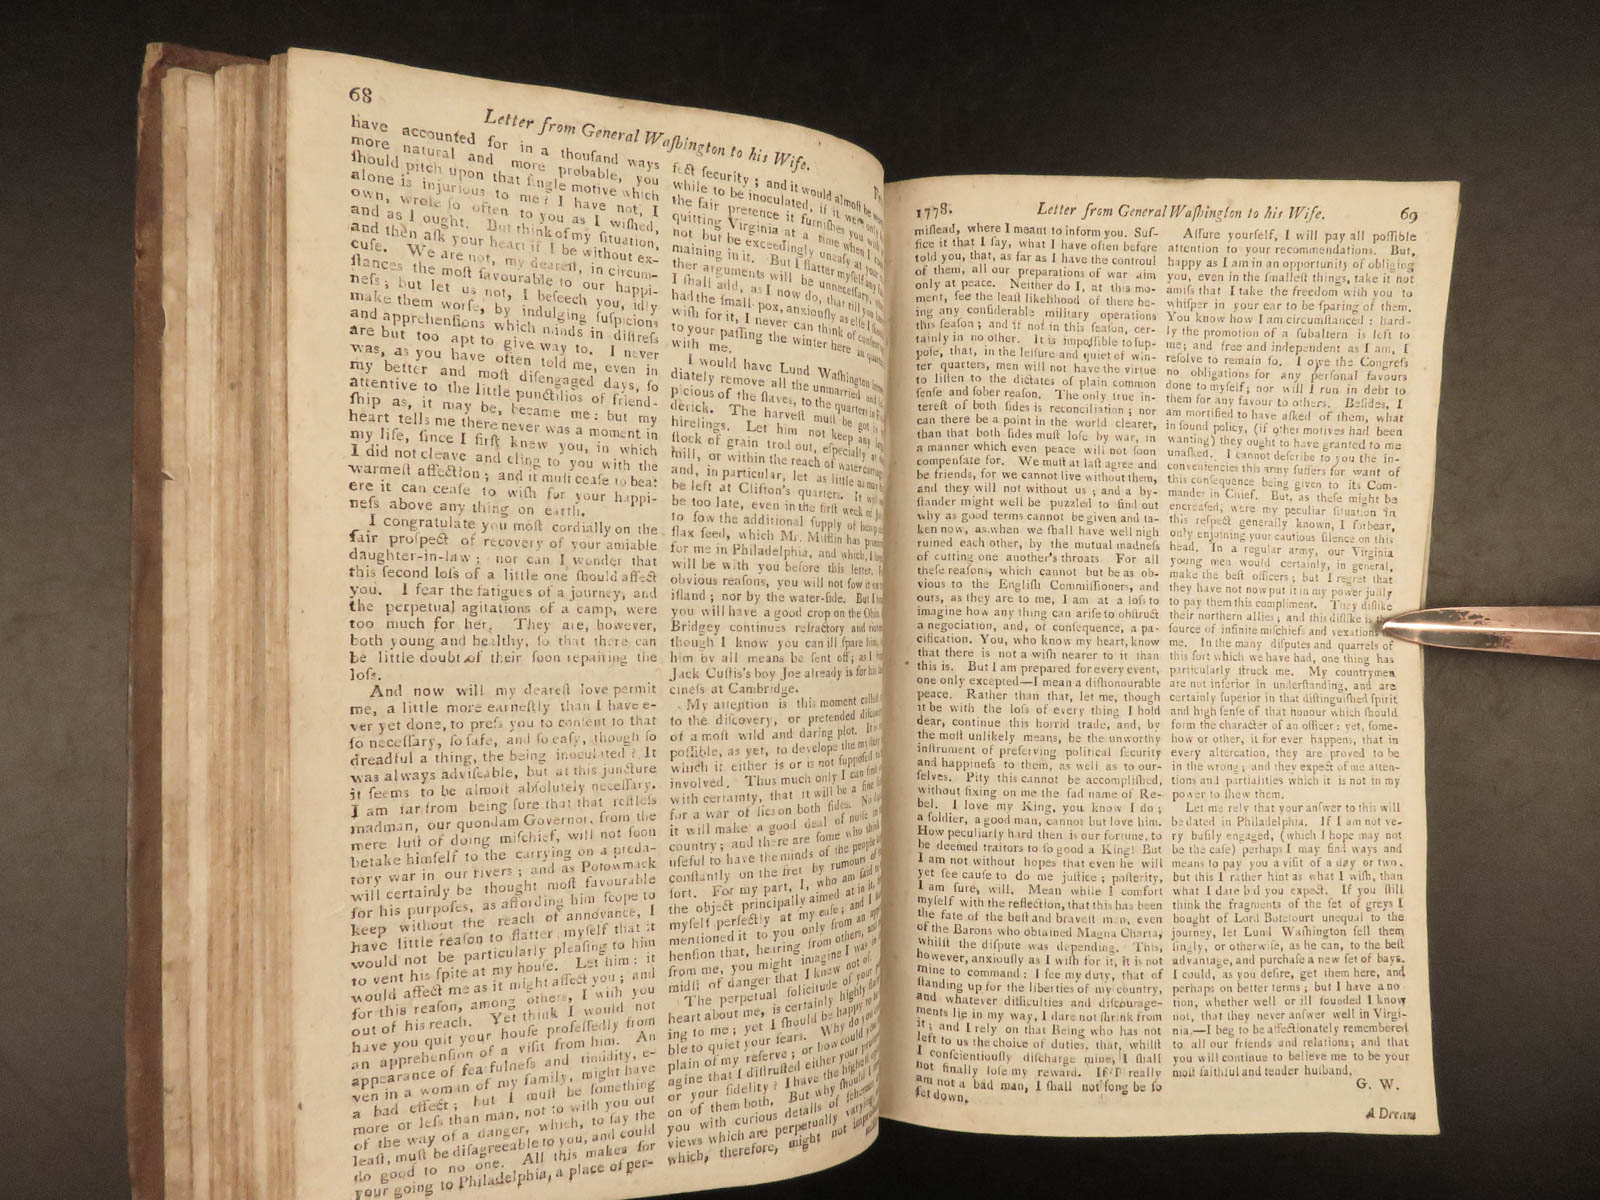 68
Letter from General Waſhington to his Wife.
have accounted for in a thouſand ways
more natural and more probable, you
ſhould pitch upon that ſingle motive which
alone is injurious to me? I have not, I
own, wrote ſo often to you as I wiſhed,
and as I ought. But think of my ſituation,
and then aſk your heart if I be without ex-
cuſe. We are not, my deareſt, in circum-
ſtances the moſt favourable to our happi-
neſs; but let us not, I beſeech you, idly
make them worſe, by indulging ſuſpicions
and apprehenſions which minds in diſtreſs
are but too apt to give way to. I never
was, as you have often told me, even in
my better and moſt diſengaged days, ſo
attentive to the little punctilios of friend-
ſhip as, it may be, became me: but my
heart tells me there never was a moment in
my life, ſince I firſt knew you, in which
I did not cleave and cling to you with the
warmeſt affection; and it muſt ceaſe to beat
ere it can ceaſe to wiſh for your happi-
neſs above any thing on earth.
I congratulate you moſt cordially on the
fair proſpect of recovery of your amiable
daughter-in-law; nor can I wonder that
this ſecond loſs of a little one ſhould affect
you. I fear the fatigues of a journey, and
the perpetual agitations of a camp, were
too much for her. They are, however,
both young and healthy, ſo that there can
be little doubt of their ſoon repairing the
loſs.
And now will my deareſt love permit
me, a little more earneſtly than I have e-
ver yet done, to preſs you to conſent to that
ſo neceſſary, ſo ſafe, and ſo eaſy, though ſo
dreadful a thing, the being inoculated? It
was always adviſeable, but at this juncture
it ſeems to be almoſt abſolutely neceſſary.
I am far from being ſure that that reſtleſs
madman, our quondam Governor, from the
mere luſt of doing miſchief, will not ſoon
betake himſelf to the carrying on a preda-
tory war in our rivers; and as Potowmack
will certainly be thought moſt favourable
for his purpoſes, as affording him ſcope to
keep without the reach of annoyance, I
have little reaſon to flatter myſelf that it
would not be particularly pleaſing to him
to vent his ſpite at my houſe. Let him: it
would affect me as it might affect you; and
for this reaſon, among others, I wiſh you
out of his reach. Yet think I would not
have you quit your houſe profeſſedly from
an apprehenſion of a viſit from him. An
appearance of fearfulneſs and timidity, e-
ven in a woman of my family, might have
a bad effect; but I muſt be ſomething
more or leſs than man, not to wiſh you out
of the way of a danger, which, to ſay the
leaſt, muſt be diſagreeable to you, and could
do good to no one. All this makes for
your going to Philadelphia, a place of per-
fect ſecurity; and it would almoſt be
while to be inoculated, if it were only
the fair pretence it furniſhes you with
quitting Virginia at a time when I could
not but be exceedingly uneaſy at your
maining in it. But I flatter myſelf any
ther arguments will be unneceſſary, when
I ſhall add, as I now do, that till you have
had the ſmall-pox, anxiouſly as elſe I ſhould
wiſh for it, I never can think of
to your paſſing the winter here in quarters
with me.
I would have Lund Waſhington imme-
diately remove all the unmarried and
picious of the ſlaves, to the quarters in
derick. The harveſt muſt be got in
hirelings. Let him not keep any
ſtock of grain trod out, eſpecially at the
mill, or within the reach of water carriage
and, in particular, let as little as may
be left at Clifton's quarters. It
be too late, even in the firſt week of
to ſow the additional ſupply of hemp
flax ſeed, which Mr. Mifflin has procured
for me in Philadelphia, and which, I hope
will be with you before this letter.
obvious reaſons, you will not ſow it on
iſland; nor by the water-ſide. But I
you will have a good crop on the Ohio.
Bridgey continues refractory and
though I know you can ill ſpare him,
him by all means be ſent off; as I
Jack Cuſtis's boy Joe already is for his
cineſs at Cambridge.
My attention is this moment called
to the diſcovery, or pretended diſcovery
of a moſt wild and daring plot. It is
poſſible, as yet, to develope the myſtery
which it either is or is not ſuppoſed to
involved. Thus much only I can find
with certainty, that it will be a fine
for a war of lies on both ſides. No
it will make a good deal of noiſe in the
country; and there are ſome who think
uſeful to have the minds of the people
conſtantly on the fret by rumours of
ſort. For my part, I, who am ſaid to
the object principally aimed at in it,
myſelf perfectly at my eaſe; and I
mentioned it to you only from an
henſion that, hearing from others, and
from me, you might imagine I was in
midſt of danger that I knew not of.
The perpetual ſolicitude of your
heart about me, is certainly highly
ing to me; yet I ſhould be happy to be
ble to quiet your fears. Why do you
plain of my reſerve; or how could you
agine that I diſtruſted either your
or your fidelity? I have the higheſt
on of them both. But why ſhould I
you with curious details of ſchemes
views which are perpetually varying,
which, therefore, might not
1778.
Letter from General Waſhington to his Wife.
69
miſlead, where I meant to inform you. Suf-
fice it that I ſay, what I have often before
told you, that, as far as I have the controul
of them, all our preparations of war aim
only at peace. Neither do I, at this mo-
ment, ſee the leaſt likelihood of there be-
ing any conſiderable military operations
this ſeaſon; and if not in this ſeaſon, cer-
tainly in no other. It is impoſſible to ſup-
poſe, that, in the leiſure and quiet of win-
ter quarters, men will not have the virtue
to liſten to the dictates of plain common
ſenſe and ſober reaſon. The only true in-
tereſt of both ſides is reconciliation; nor
can there be a point in the world clearer,
than that both ſides muſt loſe by war, in
a manner which even peace will not ſoon
compenſate for. We muſt at laſt agree and
be friends, for we cannot live without them,
and they will not without us; and a by-
ſtander might well be puzzled to find out
why as good terms cannot be given and ta-
ken now, as when we ſhall have well nigh
ruined each other, by the mutual madneſs
of cutting one another's throats. For all
theſe reaſons, which cannot but be as ob-
vious to the Engliſh Commiſſioners, and
ours, as they are to me, I am at a loſs to
imagine how any thing can ariſe to obſtruct
a negociation, and, of conſequence, a pa-
cification. You, who know my heart, know
that there is not a wiſh nearer to it than
this is. But I am prepared for every event,
one only excepted—I mean a diſhonourable
peace. Rather than that, let me, though
it be with the loſs of every thing I hold
dear, continue this horrid trade, and, by
the moſt unlikely means, be the unworthy
inſtrument of preſerving political ſecurity
and happineſs to them, as well as to our-
ſelves. Pity this cannot be accompliſhed,
without fixing on me the ſad name of Re-
bel. I love my King, you know I do;
a ſoldier, a good man, cannot but love him.
How peculiarly hard then is our fortune, to
be deemed traitors to ſo good a King! But
I am not without hopes that even he will
yet ſee cauſe to do me juſtice; poſterity,
I am ſure, will. Mean while I comfort
myſelf with the reflection, that this has been
the fate of the beſt and braveſt men, even
of the Barons who obtained Magna Charta,
whilſt the diſpute was depending. This,
however, anxiouſly as I wiſh for it, it is not
mine to command: I ſee my duty, that of
ſtanding up for the liberties of my country,
and whatever difficulties and diſcourage-
ments lie in my way, I dare not ſhrink from
it; and I rely on that Being who has not
left to us the choice of duties, that, whilſt
I conſcientiouſly diſcharge mine, I ſhall
not finally loſe my reward. If I really
am not a bad man, I ſhall not long be ſo
ſet down.
Aſſure yourſelf, I will pay all poſſible
attention to your recommendations. But,
happy as I am in an opportunity of obliging
you, even in the ſmalleſt things, take it not
amiſs that I take the freedom with you to
whiſper in your ear to be ſparing of them.
You know how I am circumſtanced: hard-
ly the promotion of a ſubaltern is left to
me; and free and independent as I am, I
reſolve to remain ſo. I owe the Congreſs
no obligations for any perſonal favours
done to myſelf; nor will I run in debt to
them for any favour to others. Beſides, I
am mortified to have aſked of them, what
in ſound policy, (if other motives had been
wanting) they ought to have granted to me
unaſked. I cannot deſcribe to you the in-
conveniencies this army ſuffers for want of
this conſequence being given to its Com-
mander in Chief. But, as theſe might be
encreaſed, were my peculiar ſituation in
this reſpect generally known, I forbear,
only enjoining your cautious ſilence on this
head. In a regular army, our Virginia
young men would certainly, in general,
make the beſt officers; but I regret that
they have not now put it in my power juſtly
to pay them this compliment. They diſlike
their northern allies; and this diſlike is the
ſource of infinite miſchiefs and vexations
me. In the many diſputes and quarrels of
this ſort which we have had, one thing has
particularly ſtruck me. My countrymen
are not inferior in underſtanding, and are
certainly ſuperior in that diſtinguiſhed ſpirit
and high ſenſe of that honour which ſhould
form the character of an officer: yet, ſome-
how or other, it for ever happens, that in
every altercation, they are proved to be
in the wrong; and they expect of me atten-
tions and partialities which it is not in my
power to ſhew them.
Let me rely that your anſwer to this will
be dated in Philadelphia. If I am not ve-
ry buſily engaged, (which I hope may not
be the caſe) perhaps I may find ways and
means to pay you a viſit of a day or two.
but this I rather hint as what I wiſh, than
what I dare bid you expect. If you ſtill
think the fragments of the ſet of greys I
bought of Lord Botetourt unequal to the
journey, let Lund Waſhington ſell them
ſingly, or otherwiſe, as he can, to the beſt
advantage, and purchaſe a new ſet of bays.
I could, as you deſire, get them here, and
perhaps on better terms; but I have a no-
tion, whether well or ill founded I know
not, that they never anſwer well in Virgi-
nia.—I beg to be affectionately remembered
to all our friends and relations; and that
you will continue to believe me to be your
moſt faithful and tender huſband,
G. W.
A Dream